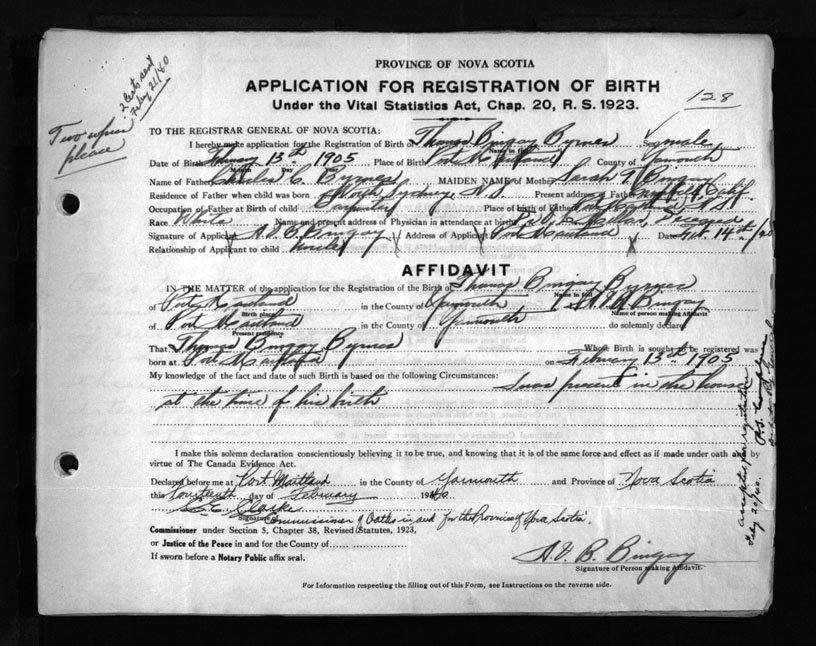 PROVINCE OF NOVA SCOTIA
APPLICATION FOR REGISTRATION OF BIRTH
Under the Vital Statistics Act, Chap. 20, R. S. 1923.
128
2 Certs. sent
Feby 21/40
Two copies
please
TO THE REGISTRAR GENERAL OF NOVA SCOTIA:
I hereby make application for the Registration of Birth of Thomas Bingay Byrnes Sex male
Name in full
Date of Birth February 13th 1905 Place of Birth Port Maitland County of Yarmouth
Month Day Year
Name of Father Charles C. Byrnes MAIDEN NAME of Mother Sarah Bingay
Residence of Father when child was born North Sydney N.S. Present address of Father Calif.
Occupation of Father at Birth of child Carpenter Place of birth of Father
Race White Name and present address of Physician in attendance at birth Deceased
Signature of Applicant A. V. B. Bingay Address of Applicant Port Maitland Date Feb. 14th/40
Relationship of Applicant to child Uncle
AFFIDAVIT
IN THE MATTER of the application for the Registration of the Birth of Thomas Bingay Byrnes
Name in full
of Port Maitland in the County of Yarmouth I, Bingay
Birth place Name of person making Affidavit
of Port Maitland in the County of Yarmouth do solemnly declare
Present residence
That Thomas Bingay Byrnes Whose Birth is sought to be registered was
born at Port Maitland on February 13th 1905
My knowledge of the fact and date of such Birth is based on the following Circumstances: I was present in the house
at the time of his birth
I make this solemn declaration conscientiously believing it to be true, and knowing that it is of the same force and effect as if made under oath and by
virtue of The Canada Evidence Act.
Declared before me at Port Maitland in the County of Yarmouth and Province of Nova Scotia
this Fourteenth day of February 1940
Clarke
Signature of
Commissioner of Oaths in and for the Province of Nova Scotia.
Commissioner under Section 5, Chapter 38, Revised Statutes, 1923,
or Justice of the Peace in and for the County of
If sworn before a Notary Public affix seal.
A. V. B. Bingay
Signature of Person making Affidavit.
For Information respecting the filling out of this Form, see Instructions on the reverse side.
Accepted for registration
Feby 20/40.